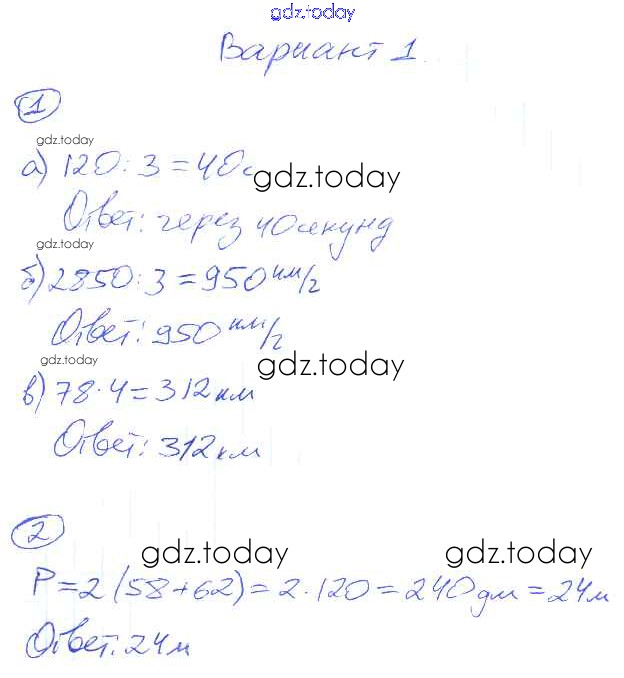 gdz.today
Вариант 1
1
gdz.today
а) 120 : 3 = 40с
gdz.today
Ответ: через 40 секунд
gdz.today
б) 2850 : 3 = 950 км/г
Ответ: 950 км/г
gdz.today
gdz.today
в) 78 · 4 = 312 км
Ответ: 312 км
2
gdz.today gdz.today
P = 2 (58 + 62) = 2 · 120 = 240 дм = 24 м
Ответ. 24 м